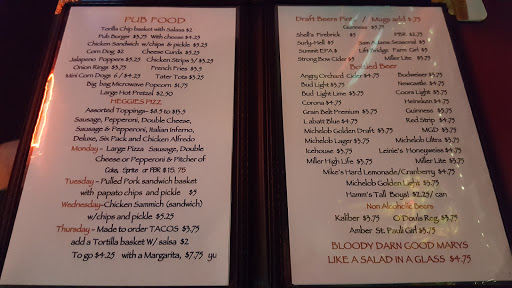 PUB FOOD
Tortilla Chip basket with Salasa $2
Pub Burger $3.75 With cheese $4.25
Chicken Sandwich w/chips & pickle $5.25
Corn Dog $2 Cheese Curds $5.25
Jalapeno Poppers $5.25 Chicken Strips 3/ $5.25
Onion Rings $3.75 French Fries $3.5
Mini Corn Dogs 6 / $4.25 Tater Tots $3.25
Big bag Microwave Popcorn $1.75
Large Hot Pretzel $2.50
HEGGIES PIZZ
Assorted Toppings-
Sausage, Pepperoni, Double Cheese,
Sausage & Pepperoni, Italian Inferno,
Deluxe, Six Pack and Chicken Alfredo
Monday - Large Pizza Sausage, Double
Cheese or Pepperoni & Pitcher of
Coke, Sprite or PBR $15.75
Tuesday - Pulled Pork sandwich basket
with papato chips and pickle $5
Wednesday-Chicken Sammich (sandwich)
w/chips and pickle $5.25
Thursday - Made to order TACOS $3.75
add a Tortilla basket W/ salsa $2
To go $4.25 with a Margarita, $7.75 yu
Draft Beers Pint / Mugs add $.75
Guinness $5.75
Shell's Firebrick $5 PBR $2.75
Surly-Hell $5 Sam Adams Seasonal $5
Summit EPA $ Lift Bridge Farm Girl $5
Strong Bow Cider $5 Miller Lite $3.75
Bottled Beer
Angry Orchard Cider $4.75 Budweiser $3.75
Bud Light $3.75 Newcastle $4.75
Bud Light Lime $3.75 Coors Light $3.75
Corona $4.75 Heineken $4.75
Grain Belt Premium $3.75 Guinness $5.75
Labatt Blue $4.75 Red Strip $4.75
Michelob Golden Draft $3.75 MGD $3.75
Michelob Lager $3.75 Michelob Ultra $3.75
Icehouse $3.75 Leinie's Honeyweiss $4.75
Miller High Life $3.75 Miller Lite $3.75
Mike's Hard Lemonade/Cranberry $4.75
Michelob Golden Light $3.75
Hamm's Tall Boys! $2.25/ can
Non Alcoholic Beers
Kaliber $3.75 O Douls Reg, $3.75
Amber St. Pauli Girl $3.75
BLOODY DARN GOOD MARYS
LIKE A SALAD IN A GLASS $4.75